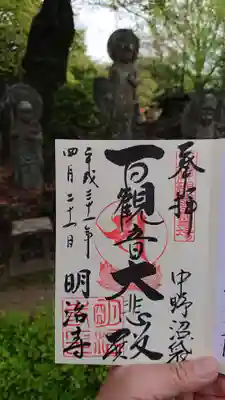 奉拝
中野沼袋
百観音大悲殿
平成三十一年
四月二十一日
明治寺